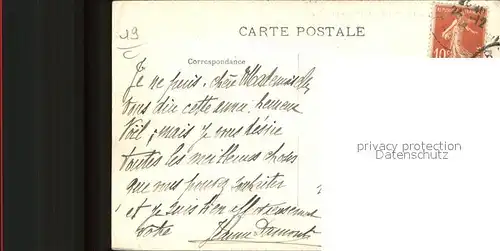 19
CARTE POSTALE
Correspondance
10c
Je ne puis, chère Mademoiselle,
vous dire cette année heureux
Noël, mais je vous désire
toutes les meilleures choses
que vous pouvez souhaiter
et je suis bien affectueusement
votre
privacy protection
Datenschutz